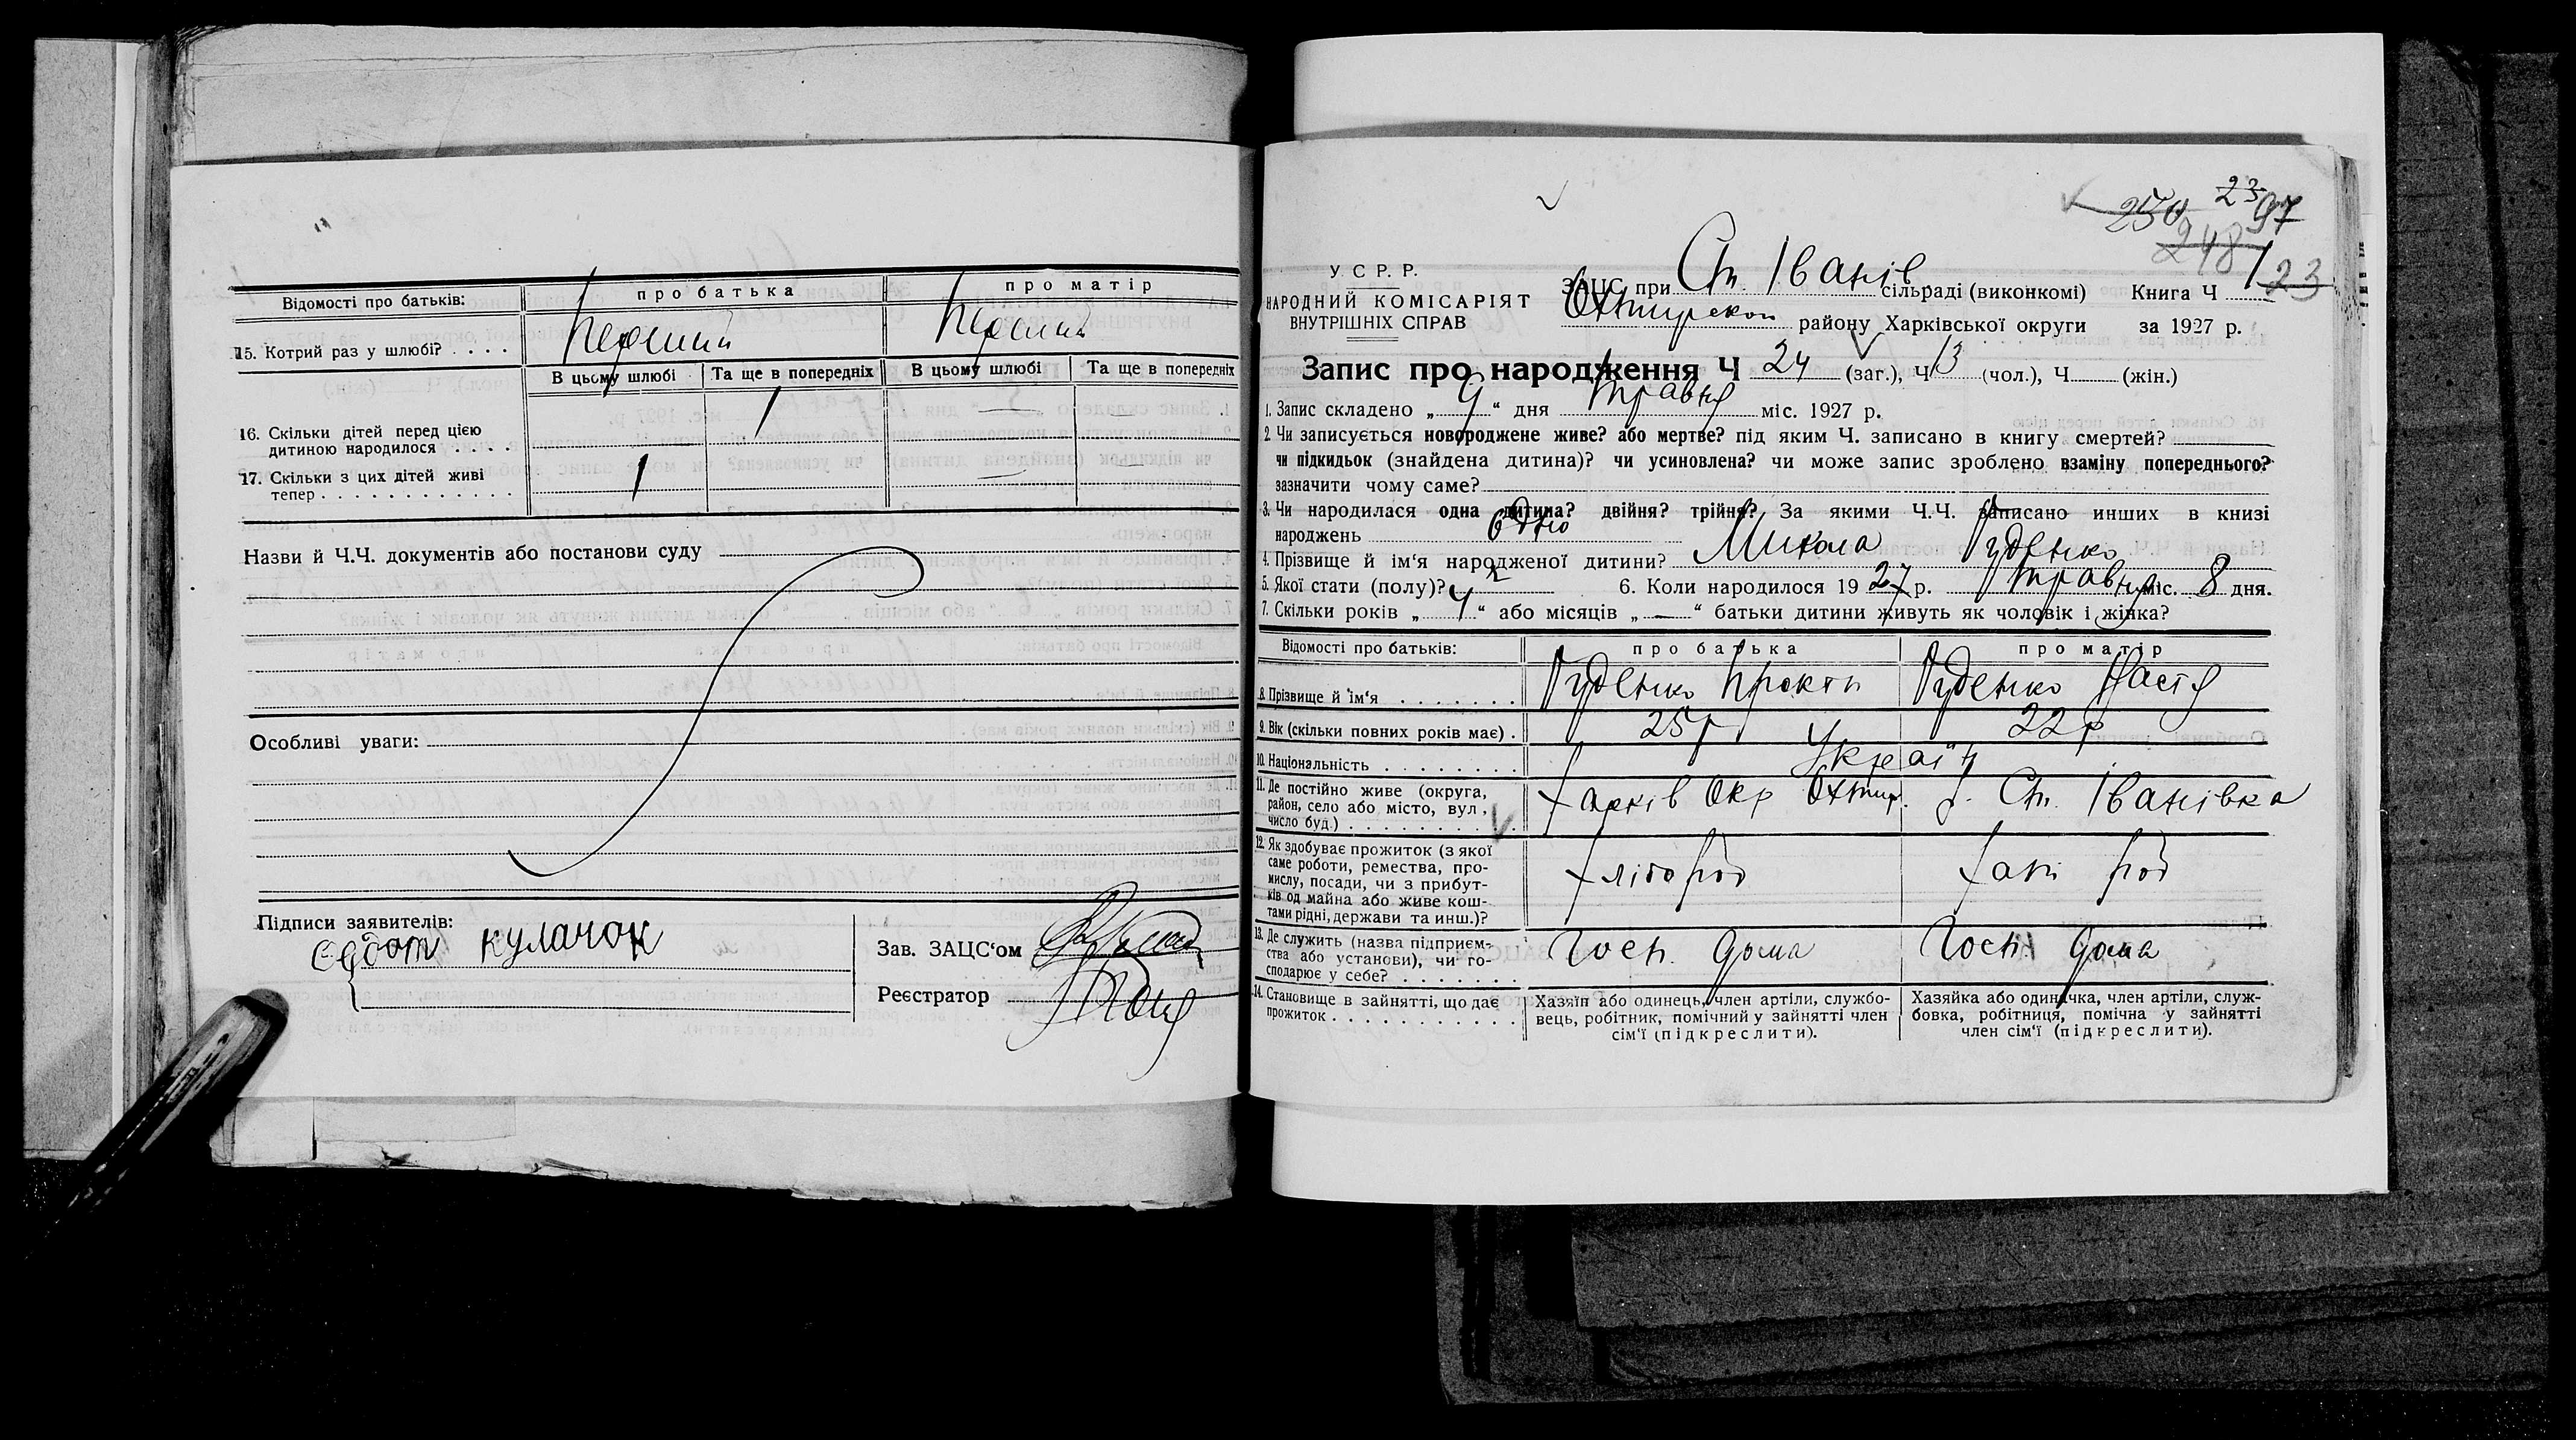 Відомості про батьків: про батька про матір
15. Котрий раз у шлюбі? . . . . Перший Перший
В цьому шлюбі Та ще в попередніх В цьому шлюбі Та ще в попередніх
16. Скільки дітей перед цією
дитиною народилося . . . . 1 — —
17. Скільки з цих дітей живі
тепер . . . . . . . . . . . . 1 — —
Назви й Ч.Ч. документів або постанови суду
Особливі уваги:
Підписи заявителів:
кулачок
Зав. ЗАЦС'ом
Реєстратор
23
250 97
248
У С Р. Р.
НАРОДНИЙ КОМІСАРІЯТ
ВНУТРІШНІХ СПРАВ
ЗАЦС при Ст. Іванів. сільраді (виконкомі) Книга Ч 1 23
Охтирской району Харківської округи за 1927 р.
Запис про народження Ч 24 (заг.), Ч 13 (чол.), Ч (жін.)
1. Запис складено „ 9 “ дня травня міс. 1927 р.
2. Чи записується новороджене живе? або мертве? під яким Ч. записано в книгу смертей?
чи підкидьок (знайдена дитина)? чи усиновлена? чи може запис зроблено взаміну попереднього?
зазначити чому саме?
3. Чи народилася одна дитина? двійня? трійня? За якими Ч.Ч. записано инших в книзі
народжень одно
4. Прізвище й ім'я народженої дитини? Микола Руденко
5. Якої стати (полу)? ч 6. Коли народилося 19 27 р. травня міс. 8 дня.
7. Скільки років „ 4 “ або місяців „ — “ батьки дитини живуть як чоловік і жінка?
Відомості про батьків: про батька про матір
8. Прізвище й ім'я . . . . . . . Руденко Прокоп Руденко Настя
9. Вік (скільки повних років має) . 25 р 22 р
10. Національність . . . . . . . . Україн
11. Де постійно живе (округа,
район, село або місто, вул.,
число буд.) . . . . . . . . . Харків Окр Охтир. р. Ст. Іванівка
12. Як здобуває прожиток (з якої
саме роботи, ремества, про-
мислу, посади, чи з прибут-
ків од майна або живе кош-
тами рідні, держави та инш.)? хліброб хатн роб
13. Де служить (назва підприєм-
ства або установи), чи го-
сподарює у себе? . . . . . . . Госп. дома Госп. дома
14. Становище в зайнятті, що дає
прожиток . . . . . . . . . . .
Хазяїн або одинець, член артіли, службо-
вець, робітник, помічний у зайнятті член
сім'ї (підкреслити).
Хазяйка або одиначка, член артіли, служ-
бовка, робітниця, помічна у зайнятті
член сім'ї (підкреслити).